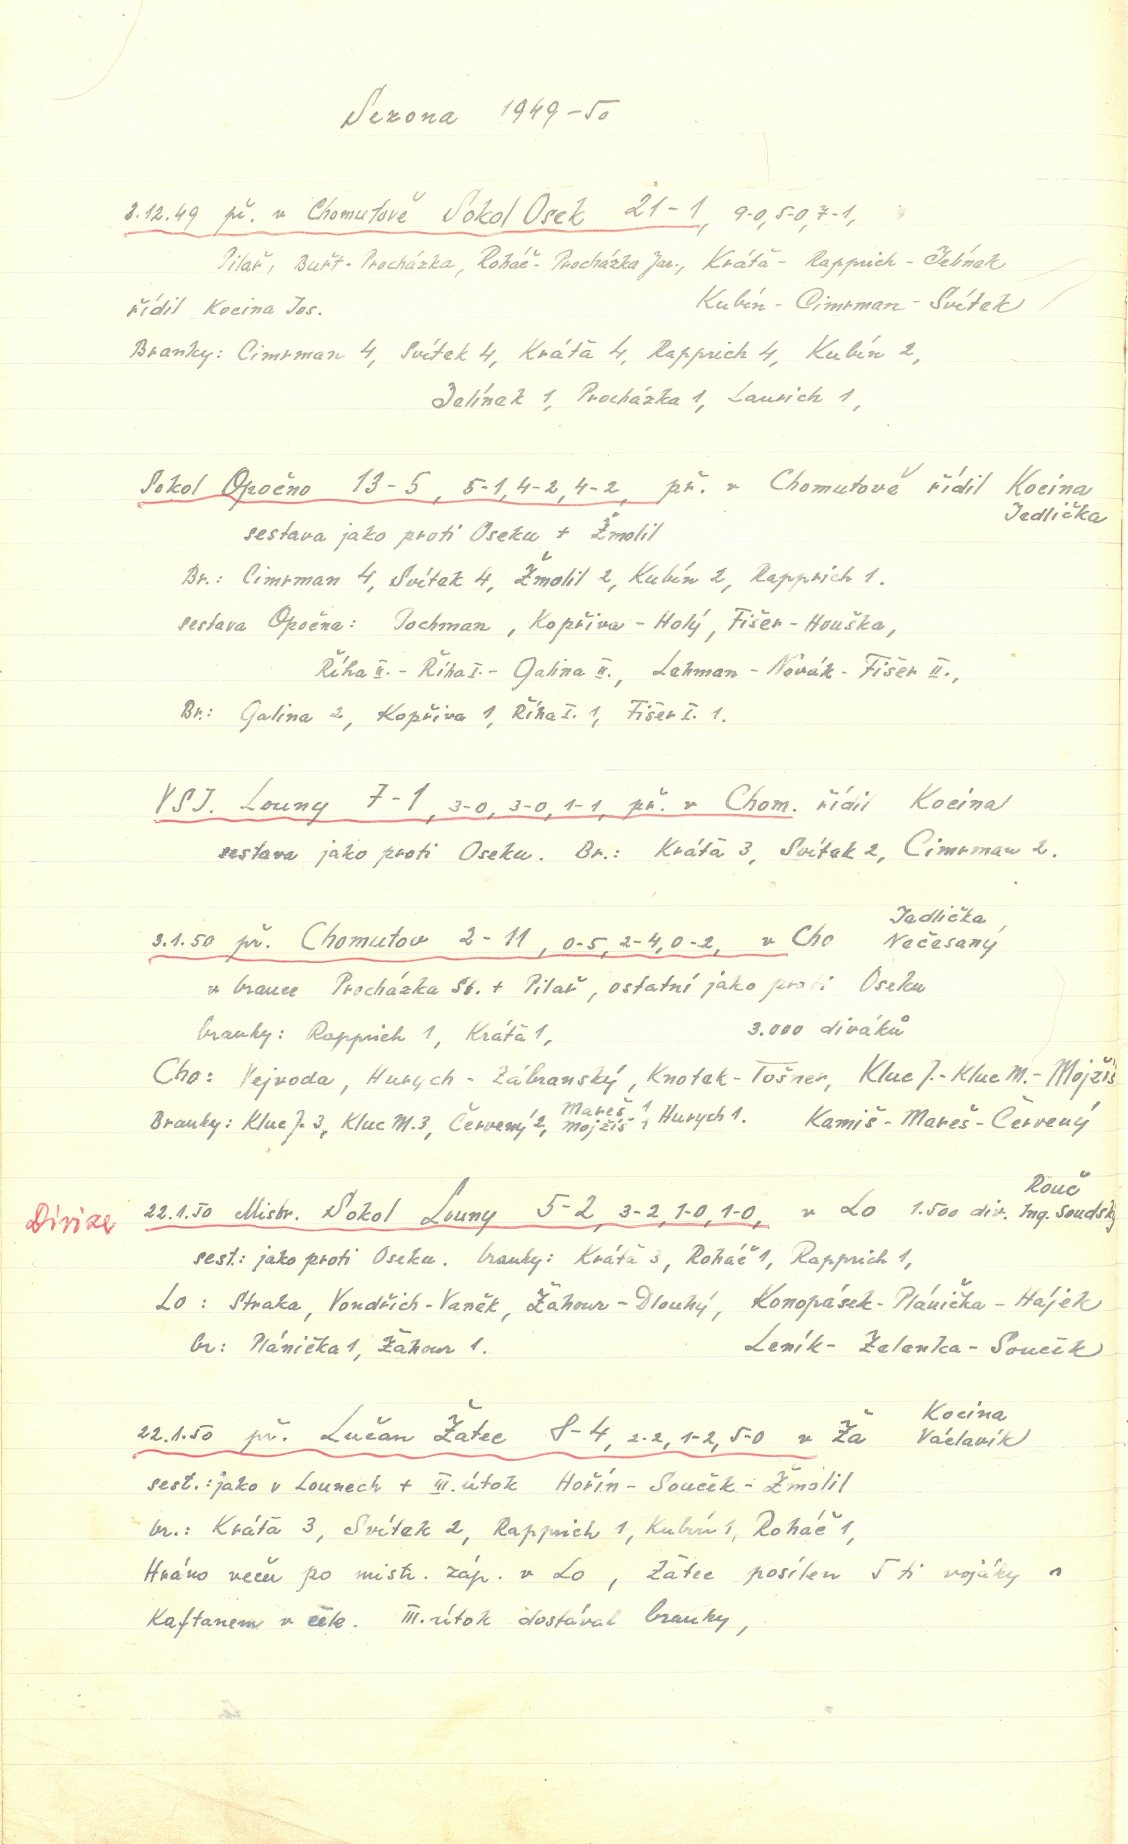 Sezona 1949-50
3.12.49 př. v Chomutově Sokol Osek 21-1, 9-0, 5-0, 7-1,
Pilař, Buřt - Procházka, Roháč - Procházka Jar., Krátā - Rapprich - Jelínek
řídil Kocina Jos. Kubín - Cimrman - Svítek
Branky: Cimrman 4, Svítek 4, Krátā 4, Rapprich 4, Kubín 2,
Jelínek 1, Procházka 1, Laurich 1,
Sokol Opočno 13-5, 5-1, 4-2, 4-2, př. v Chomutově řídil Kocina
Jedlička
sestava jako proti Oseku + Žmolil
Br.: Cimrman 4, Svítek 4, Žmolil 2, Kubín 2, Rapprich 1.
sestava Opočna: Pochman, Kopřiva - Holý, Fišer - Houška,
Říha II. - Říha I. - Galina II., Lehman - Novák - Fišer II.,
Br.: Galina 2, Kopřiva 1, Říha I. 1, Fišer I. 1.
VSJ. Louny 7-1, 3-0, 3-0, 1-1, př. v Chom. řídil Kocina
sestava jako proti Oseku. Br.: Krátā 3, Svítek 2, Cimrman 2.
Jedlička
3.1.50 př. Chomutov 2-11, 0-5, 2-4, 0-2, v Cho Nečesaný
v brance Procházka St. + Pilař, ostatní jako proti Oseku
branky: Rapprich 1, Krátā 1, 3.000 diváků
Cho: Vejvoda, Hurych - Zábranský, Knotek - Tošner, Kluc J. - Kluc M. - Mojžíš
Branky: Kluc J. 3, Kluc M. 3, Červený 2, Mareš 1 Mojžíš 1 Hurych 1. Kamiš - Mareš - Červený
Rouč
Divize 22.1.50 Mistr. Sokol Louny 5-2, 3-2, 1-0, 1-0, v Lo 1.500 div. Ing. Soudský
sest.: jako proti Oseku. branky: Krátā 3, Roháč 1, Rapprich 1,
Lo: Straka, Vondřich - Vaněk, Žahour - Dlouhý, Konopásek - Plánička - Hájek
br: Plánička 1, Žahour 1. Leník - Zelenka - Souček
Kocina
22.1.50 př. Lučan Žatec 8-4, 2-2, 1-2, 5-0 v Ža Václavík
sest.: jako v Lounech + III. útok Hořín - Souček - Žmolil
br.: Krátā 3, Svítek 2, Rapprich 1, Kubín 1, Roháč 1,
Hráno večer po mistr. záp. v Lo, Žatec posílen 5 ti vojáky
Kaftanem v čele. III. útok dostával branky,